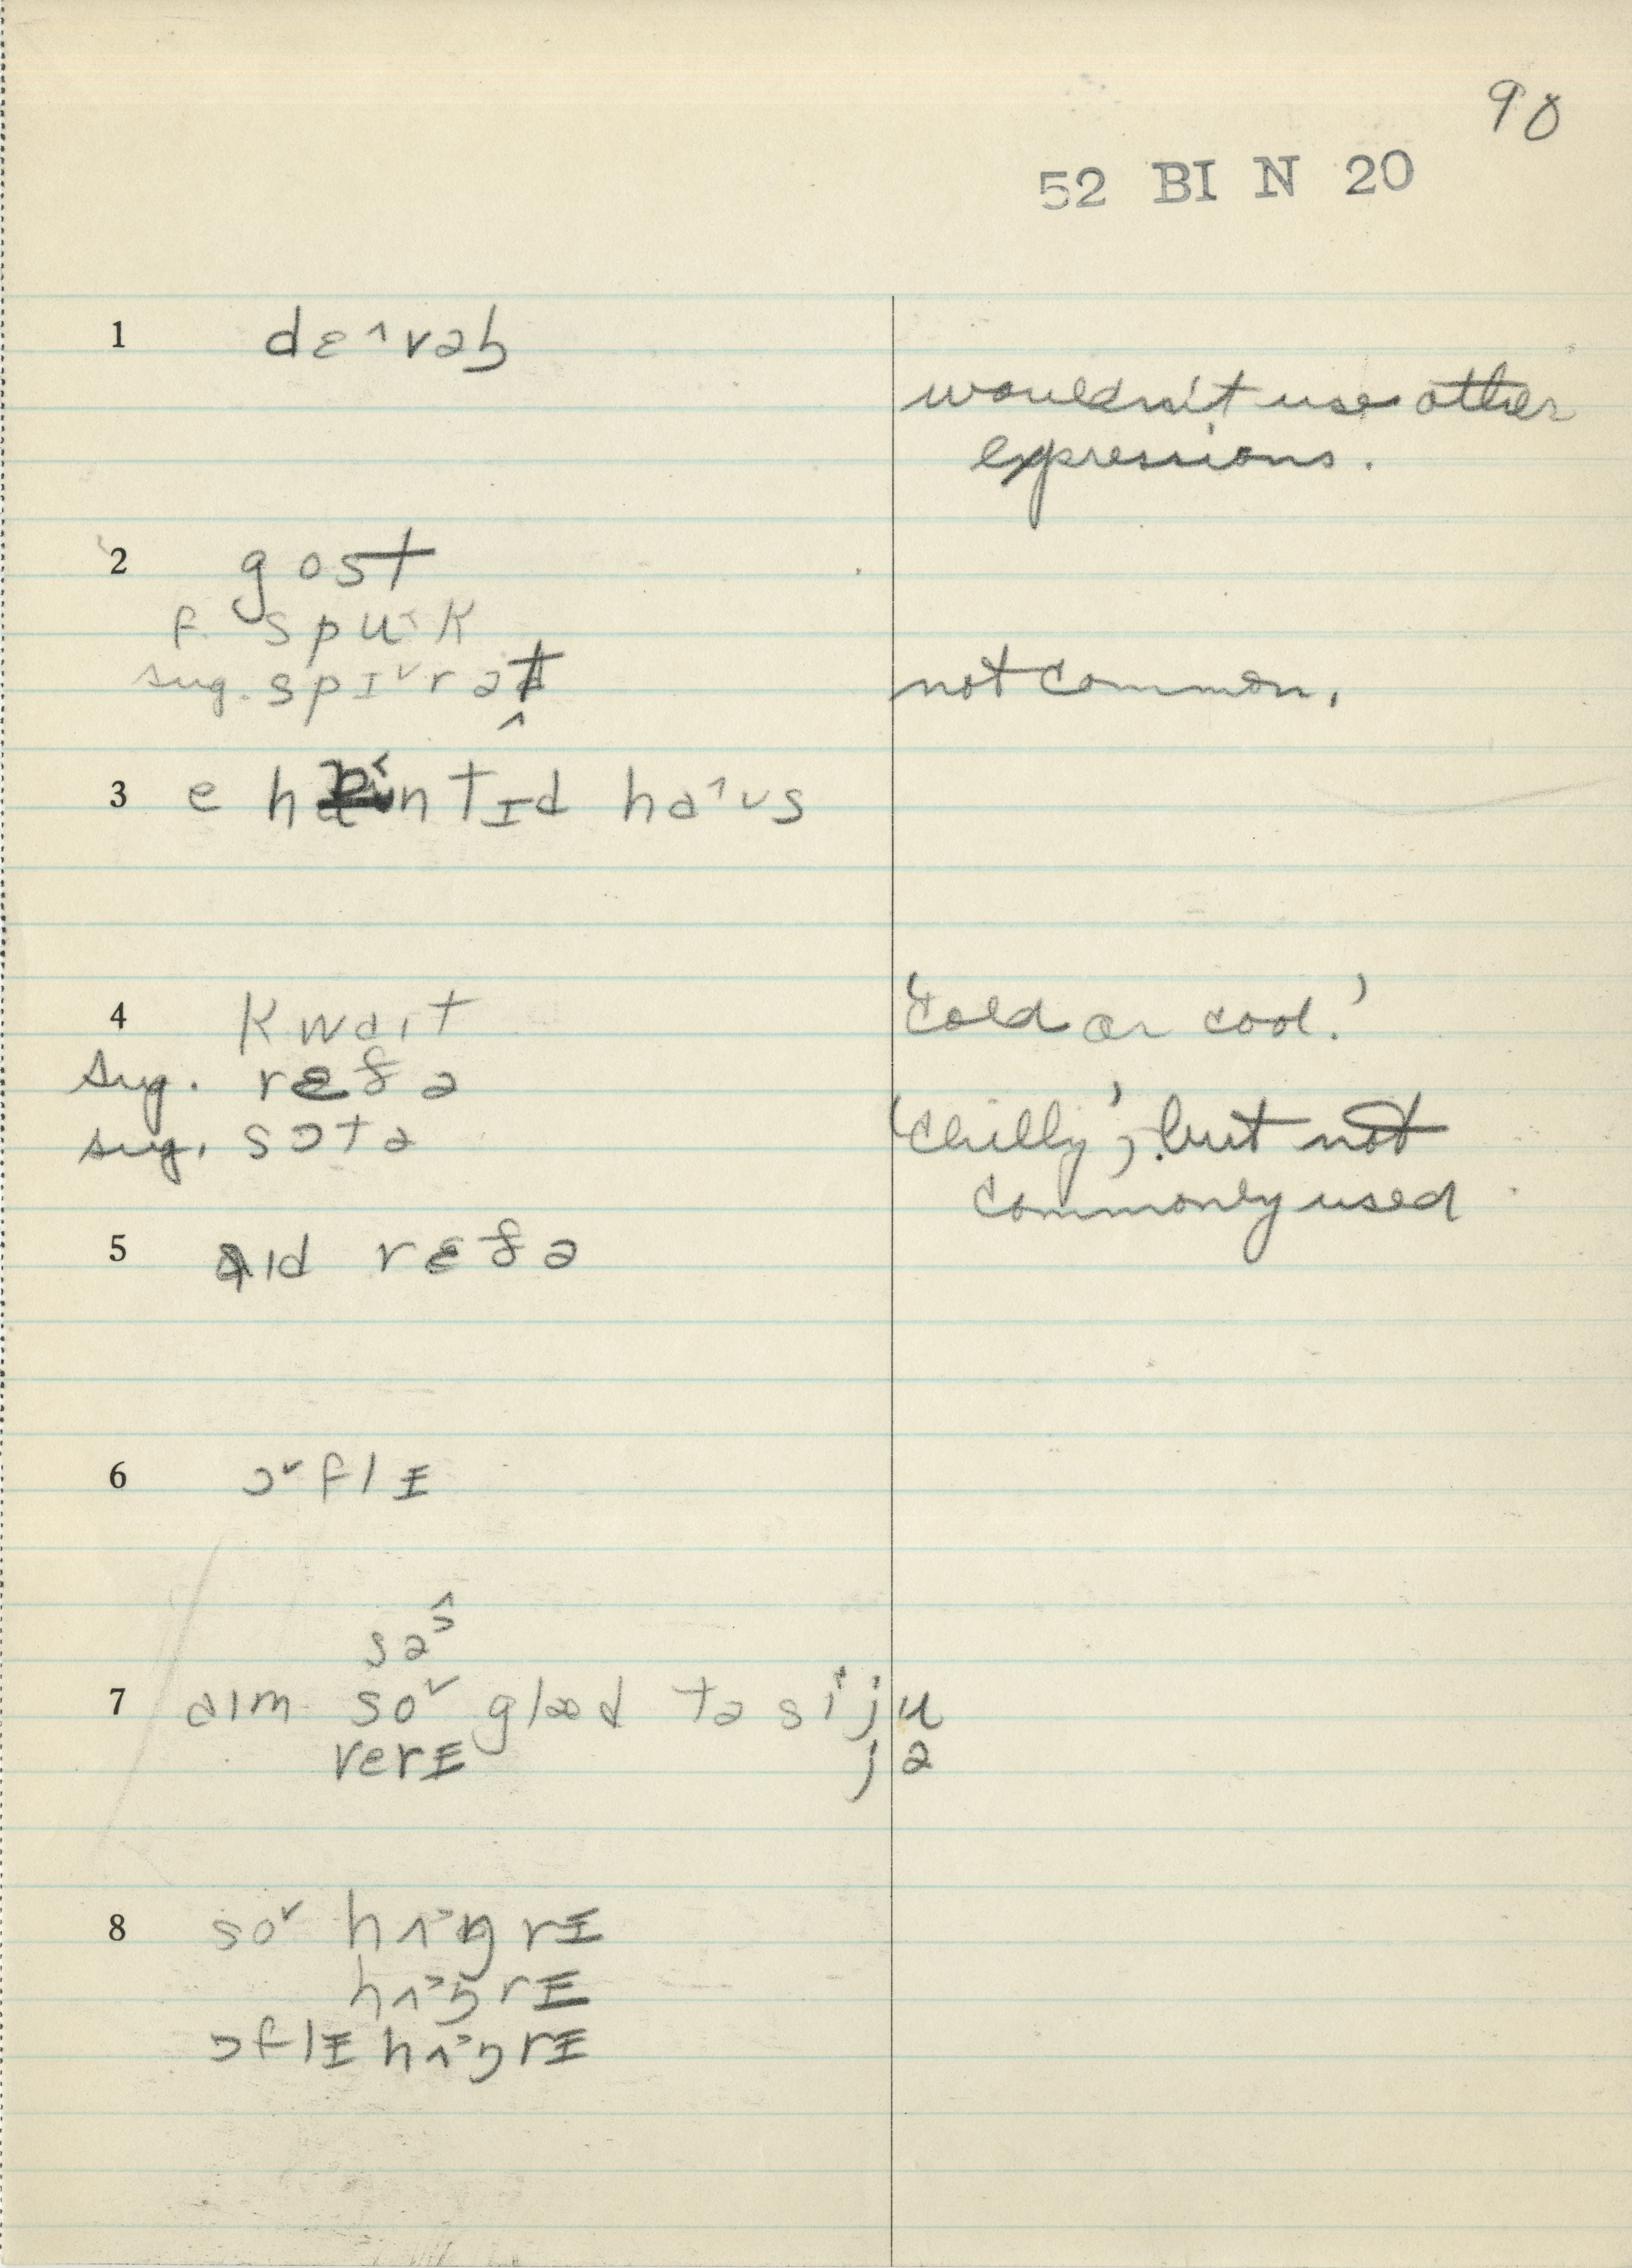 90
52 BI N 20
1 dɛ˄vəɫ
wouldn't use other
expressions.
2 gost
f. spu˂k
sug. spɪ˅rət̬
not common.
3 e hæ˂ntɪd ha˄ʊs
4 kwaɪt
'cold or cool.'
sug. rəðə
sug. sɔtə
'chilly', but not
commonly used
5 aɪd rɛðə
6 ɔ˅flɪ
sə
7 aɪm so˅ glæd tə si ju
verɪ jə
8 so˅ hʌŋgrɪ
hʌŋrɪ
ɔflɪ hʌŋrɪ